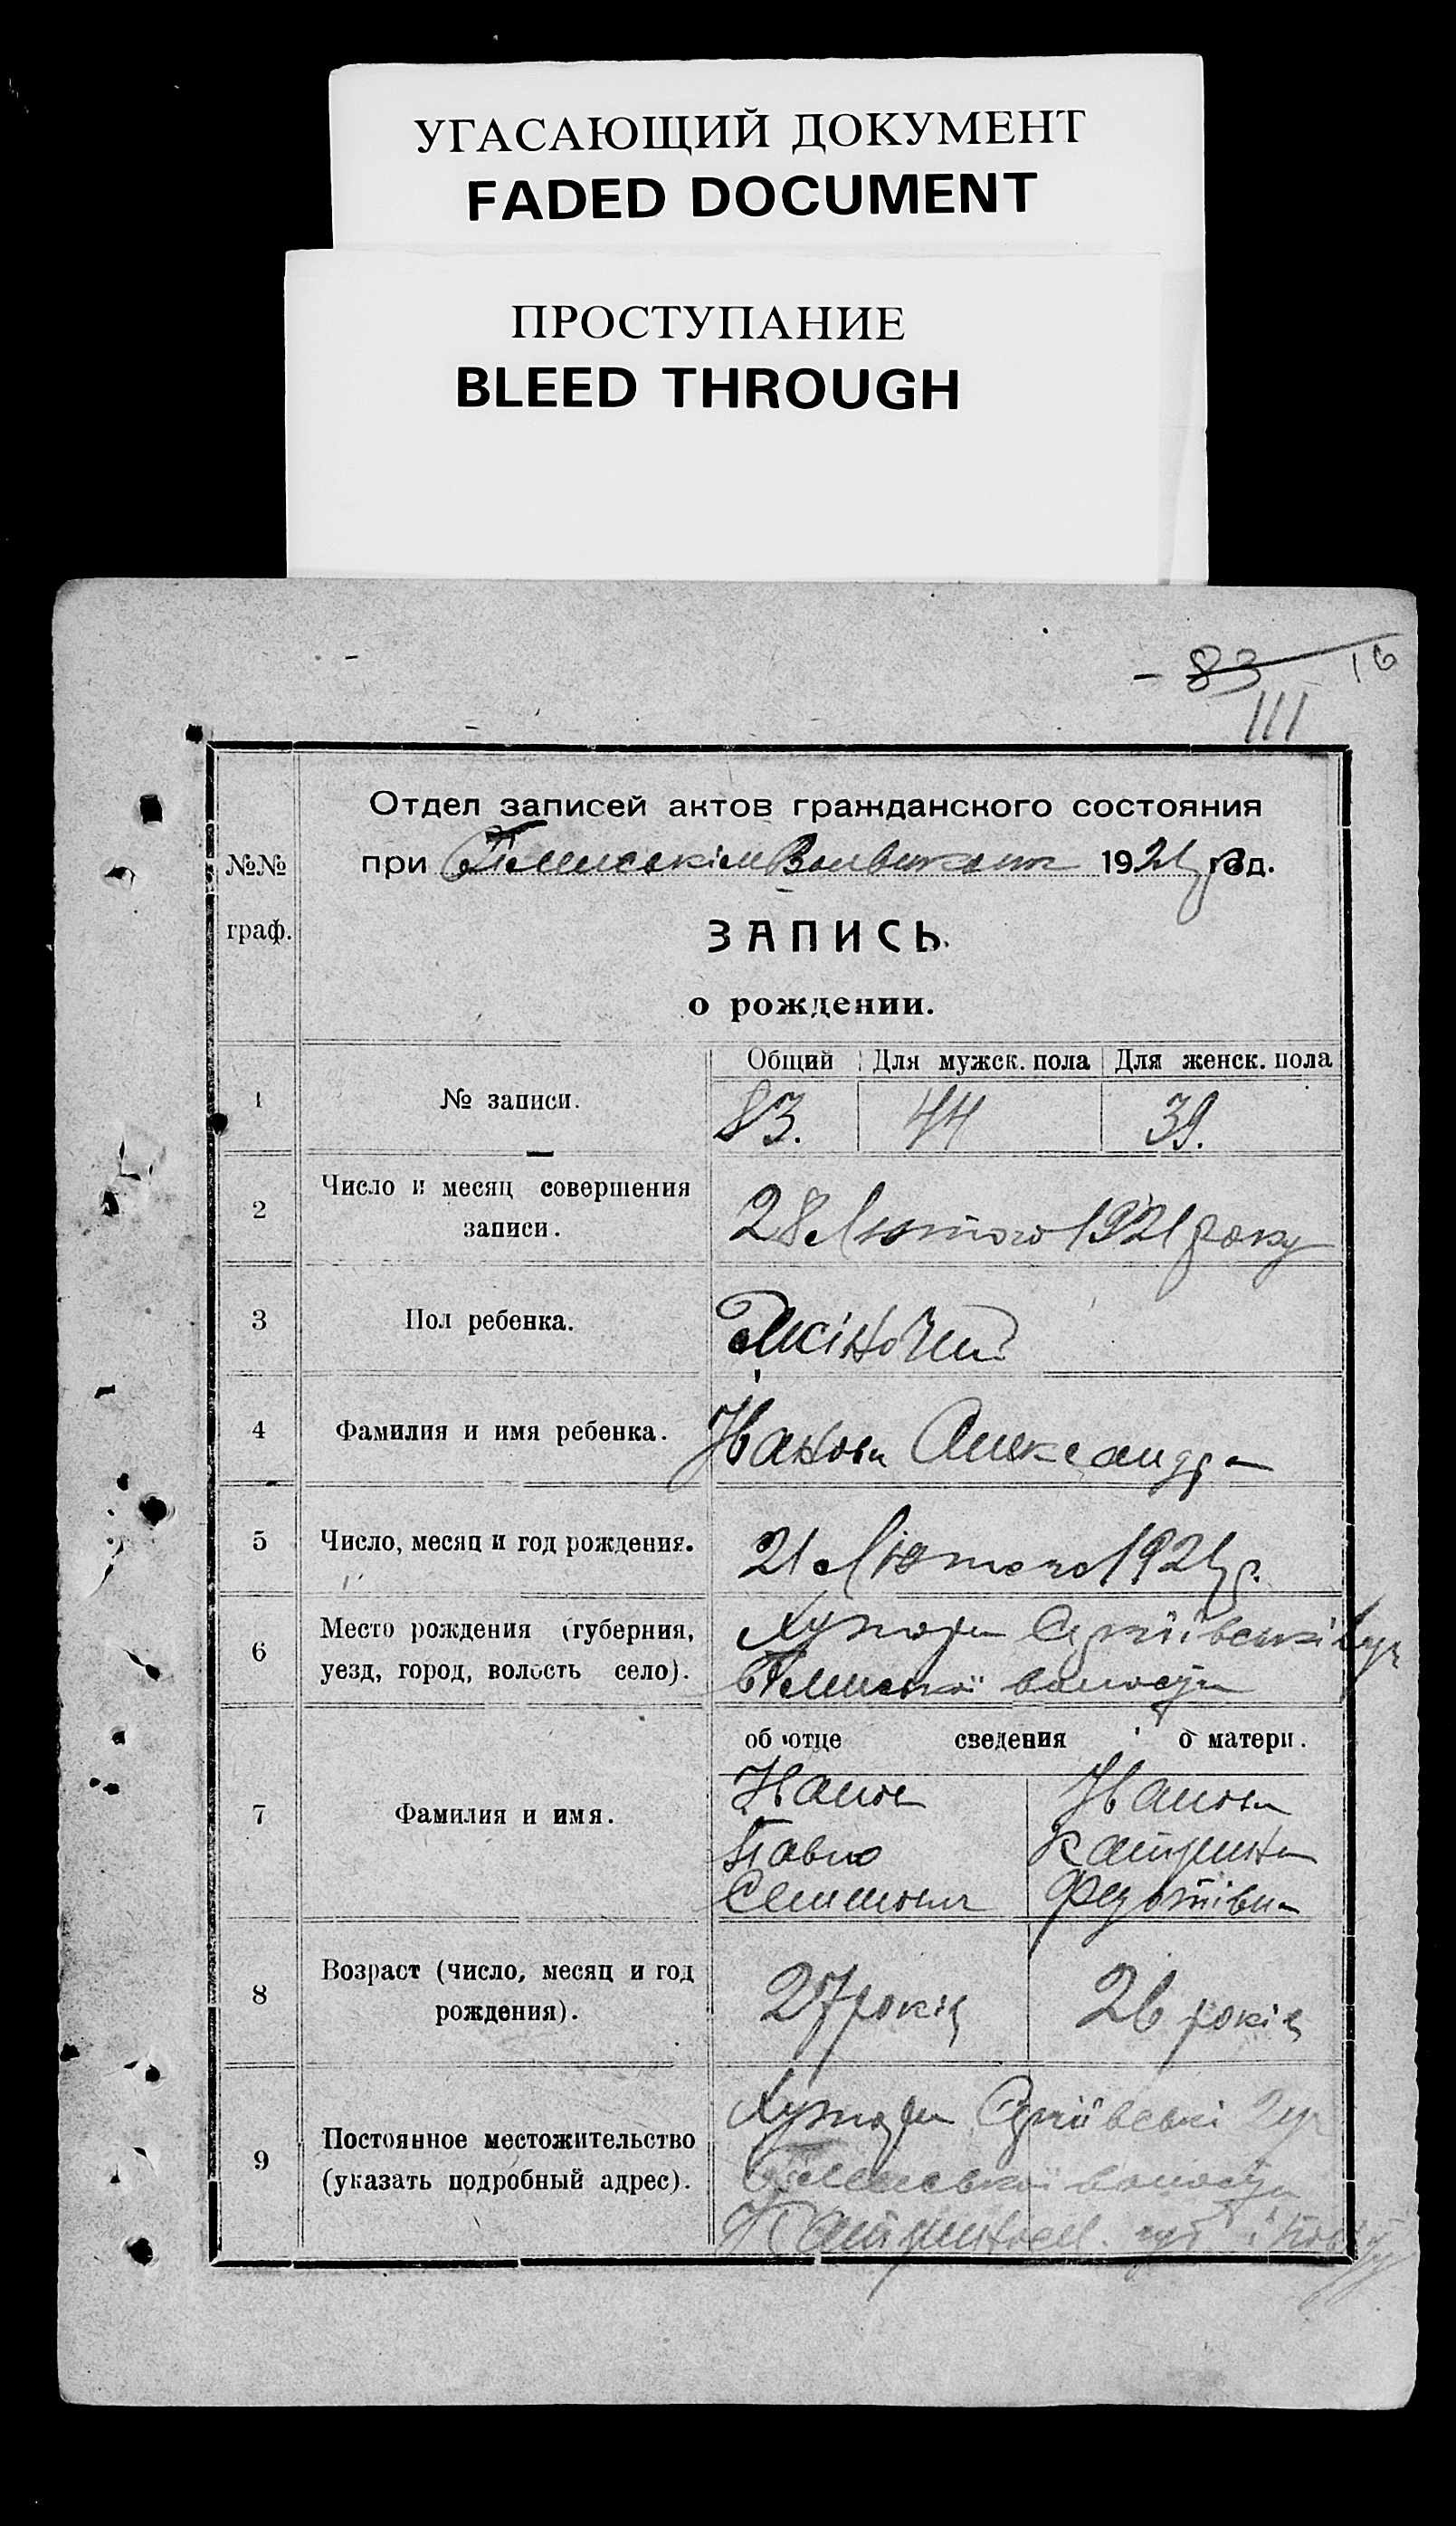 УГАСАЮЩИЙ ДОКУМЕНТ
FADED DOCUMENT
ПРОСТУПАНИЕ
BLEED THROUGH
– 83 16
111
Отдел записей актов гражданского состояния
№№ при 1921 год.
граф.
ЗАПИСЬ
о рождении.
Общий Для мужск. пола Для женск. пола
1 № записи. 83. 44 39.
2 Число и месяц совершения
записи. 28 Лютого 1921 року
3 Пол ребенка. Жіночий
4 Фамилия и имя ребенка. Александра
5 Число, месяц и год рождения. 21 Лютого 1921 р.
6 Место рождения (губерния, Хутори
уезд, город, волость село). волости
об отце сведения о матери.
7 Фамилия и имя.
Павло Катерина
Семенович Федотівна
8 Возраст (число, месяц и год
рождения). 27 років 26 років
9 Постоянное местожительство Хутори
(указать подробный адрес). волости